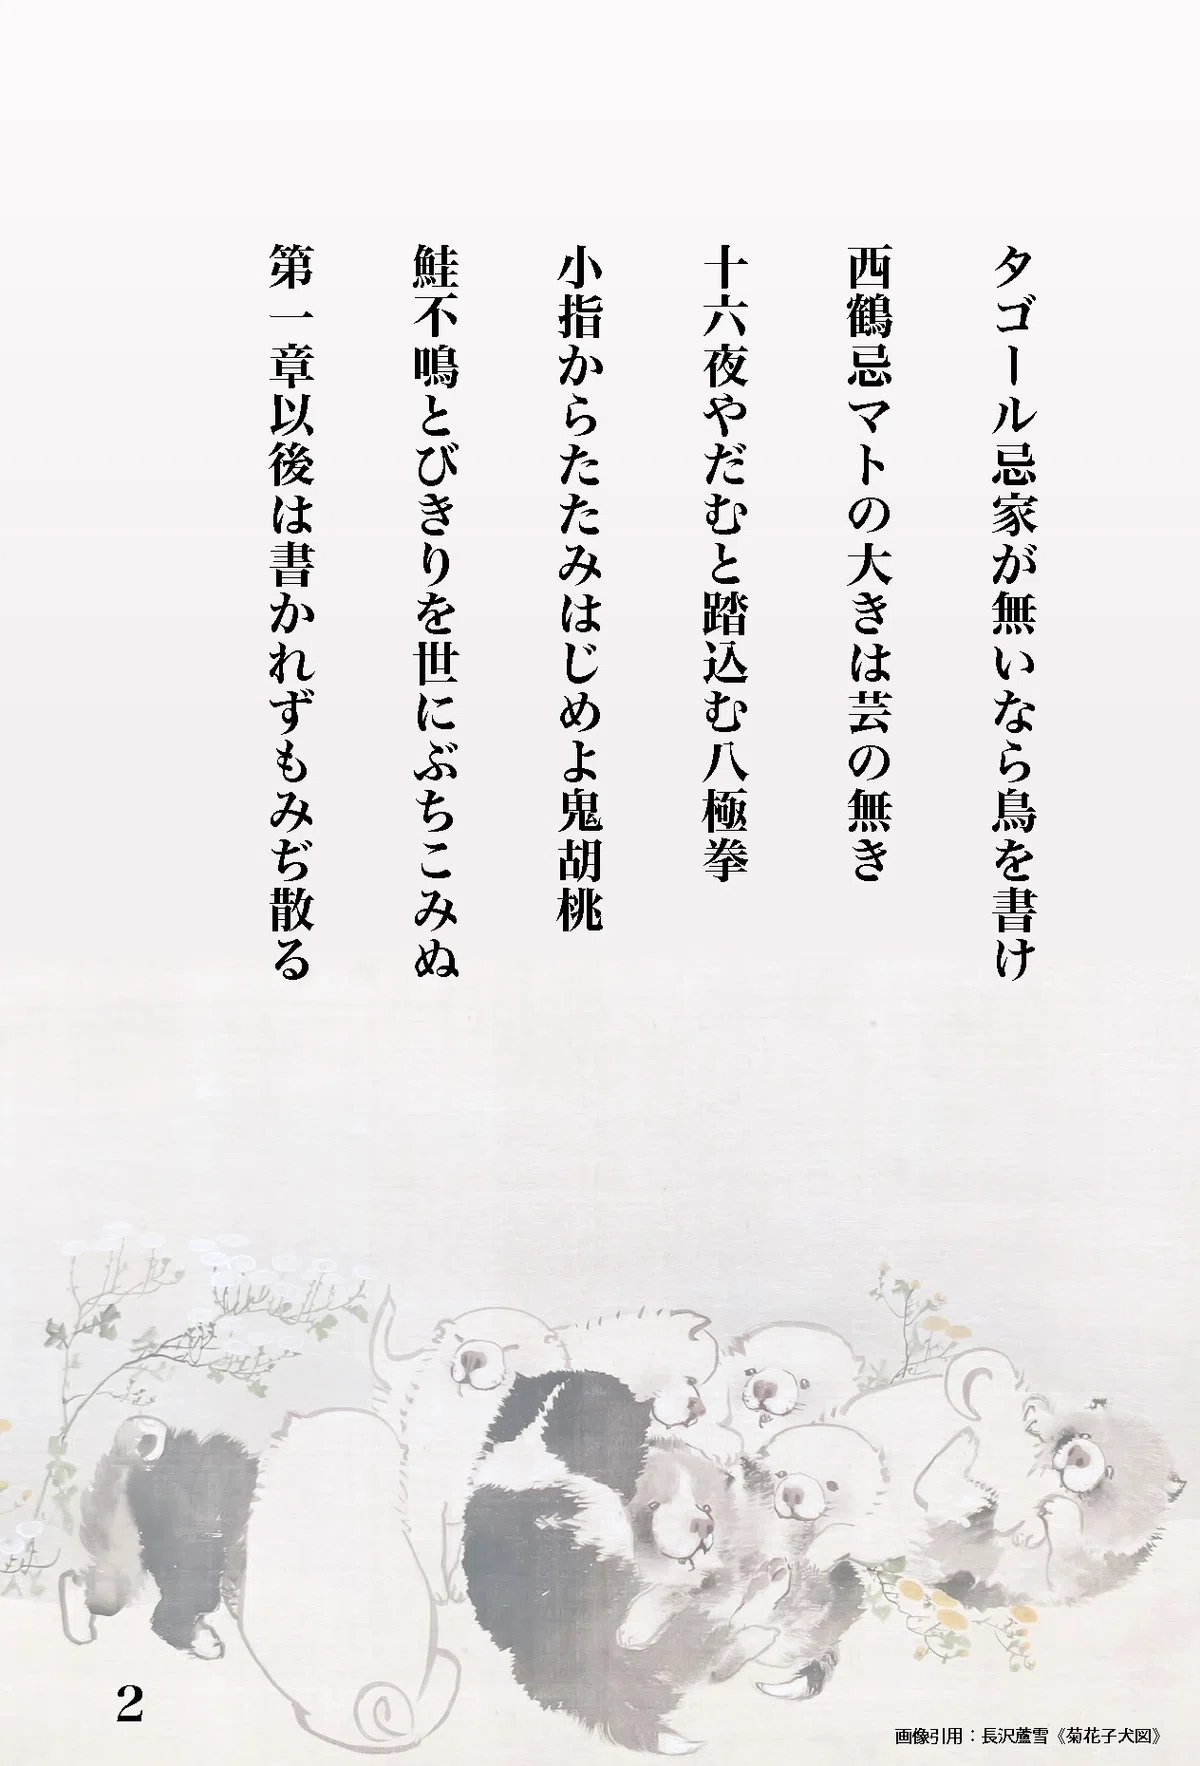 タゴール忌家が無いなら鳥を書け
西鶴忌マトの大きは芸の無き
十六夜やだむと踏込む八極拳
小指からたたみはじめよ鬼胡桃
鮭不鳴とびきりを世にぶちこみぬ
第一章以後は書かれずもみぢ散る
2
画像引用：長沢蘆雪《菊花子犬図》